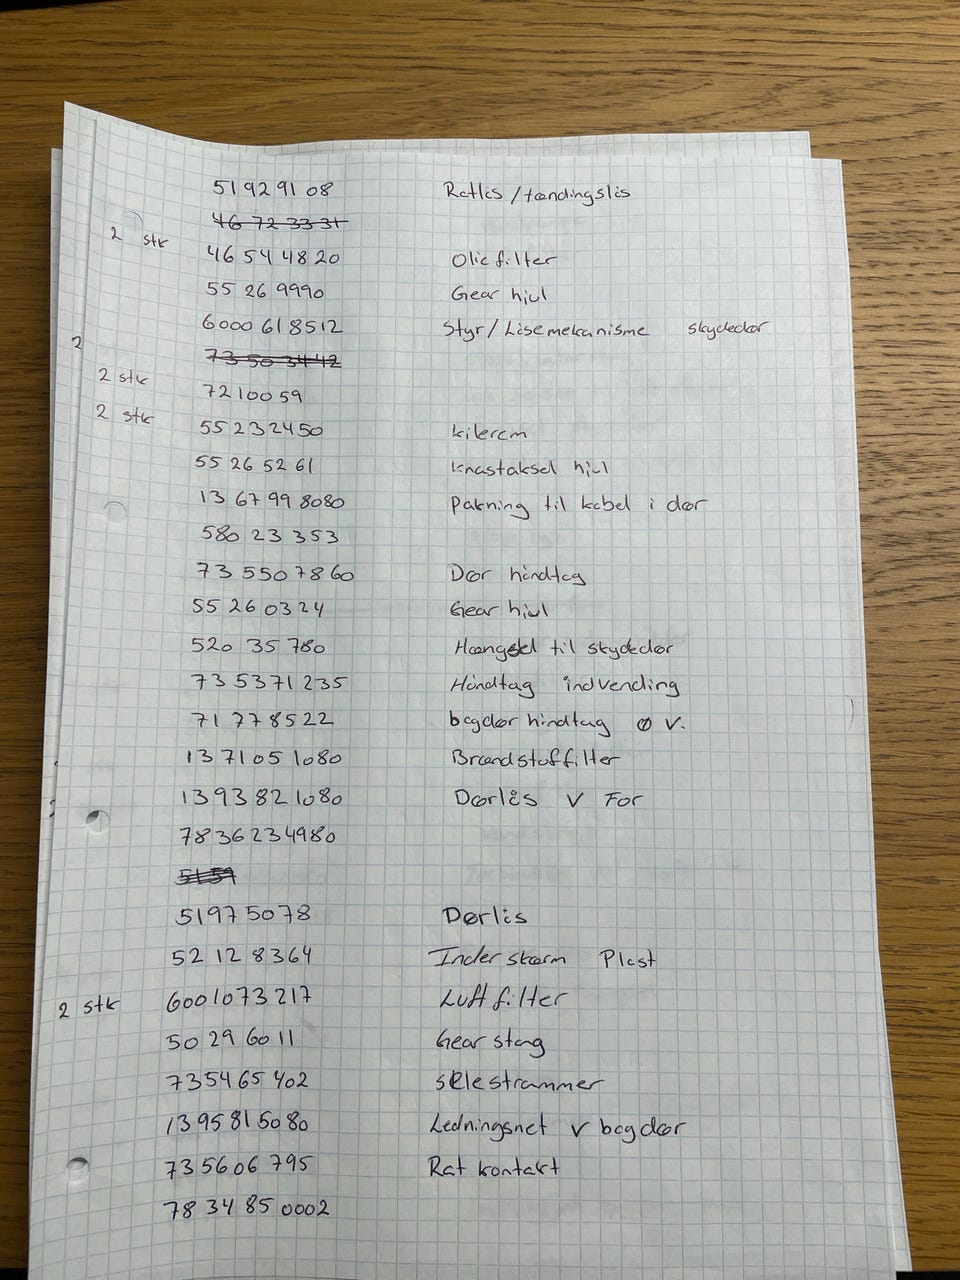 51 92 91 08 Ratlås / tændingslås
46 72 33 31
2 stk 46 54 48 20 Olie filter
55 26 9990 Gear hjul
6000 618512 Styr/Låsemekanisme skydedør
2 73 50 34 42
2 stk 72 100 59
2 stk 55 232450 kilerem
55 26 52 61 knastaksel hjul
13 67 99 8080 Pakning til kabel i dør
580 23 353
73 550 7860 Dør håndtag
55 26 0324 Gear hjul
520 35 780 Hængsel til skydedør
73 5371 235 Håndtag indvending
71 778522 bagdør håndtag Ø V.
13 71 05 1080 Brændstoffilter
13 93 82 1080 Dørlås V For
78 36 23 4980
51 59
5197 5078 Dørlås
52 12 8364 Inder skærm Plast
2 stk 6001073 217 Luft filter
50 29 60 11 Gear stang
73 54 65 402 selestrammer
13 95 81 5080 Ledningsnet V bagdør
73 5606 795 Rat kontakt
78 34 85 0002